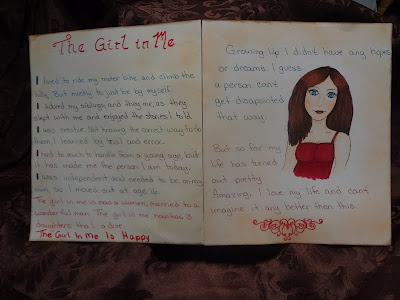 The Girl in Me
I loved to ride my motor bike and climb the
hills. But mostly to just be by myself.
I adored my siblings and they me, as they
slept with me and enjoyed the stories I told.
I was creative. Not knowing the correct way to do
them I learned by trial and error.
I had so much to handle from a young age, but
it has made me the person I am today.
I was independent and needed to be on my
own, so I moved out at age 16.
The girl in me is now a women, married to a
wonderful man. The girl in me now has 3
daughters that I adore.
The Girl In Me Is Happy
Growing up I didn't have any hopes
or dreams. I guess
a person can't
get disapointed
that way.
But so far my
life has turned
out pretty
Amazing. I love my life and can't
imagine it any better then this.